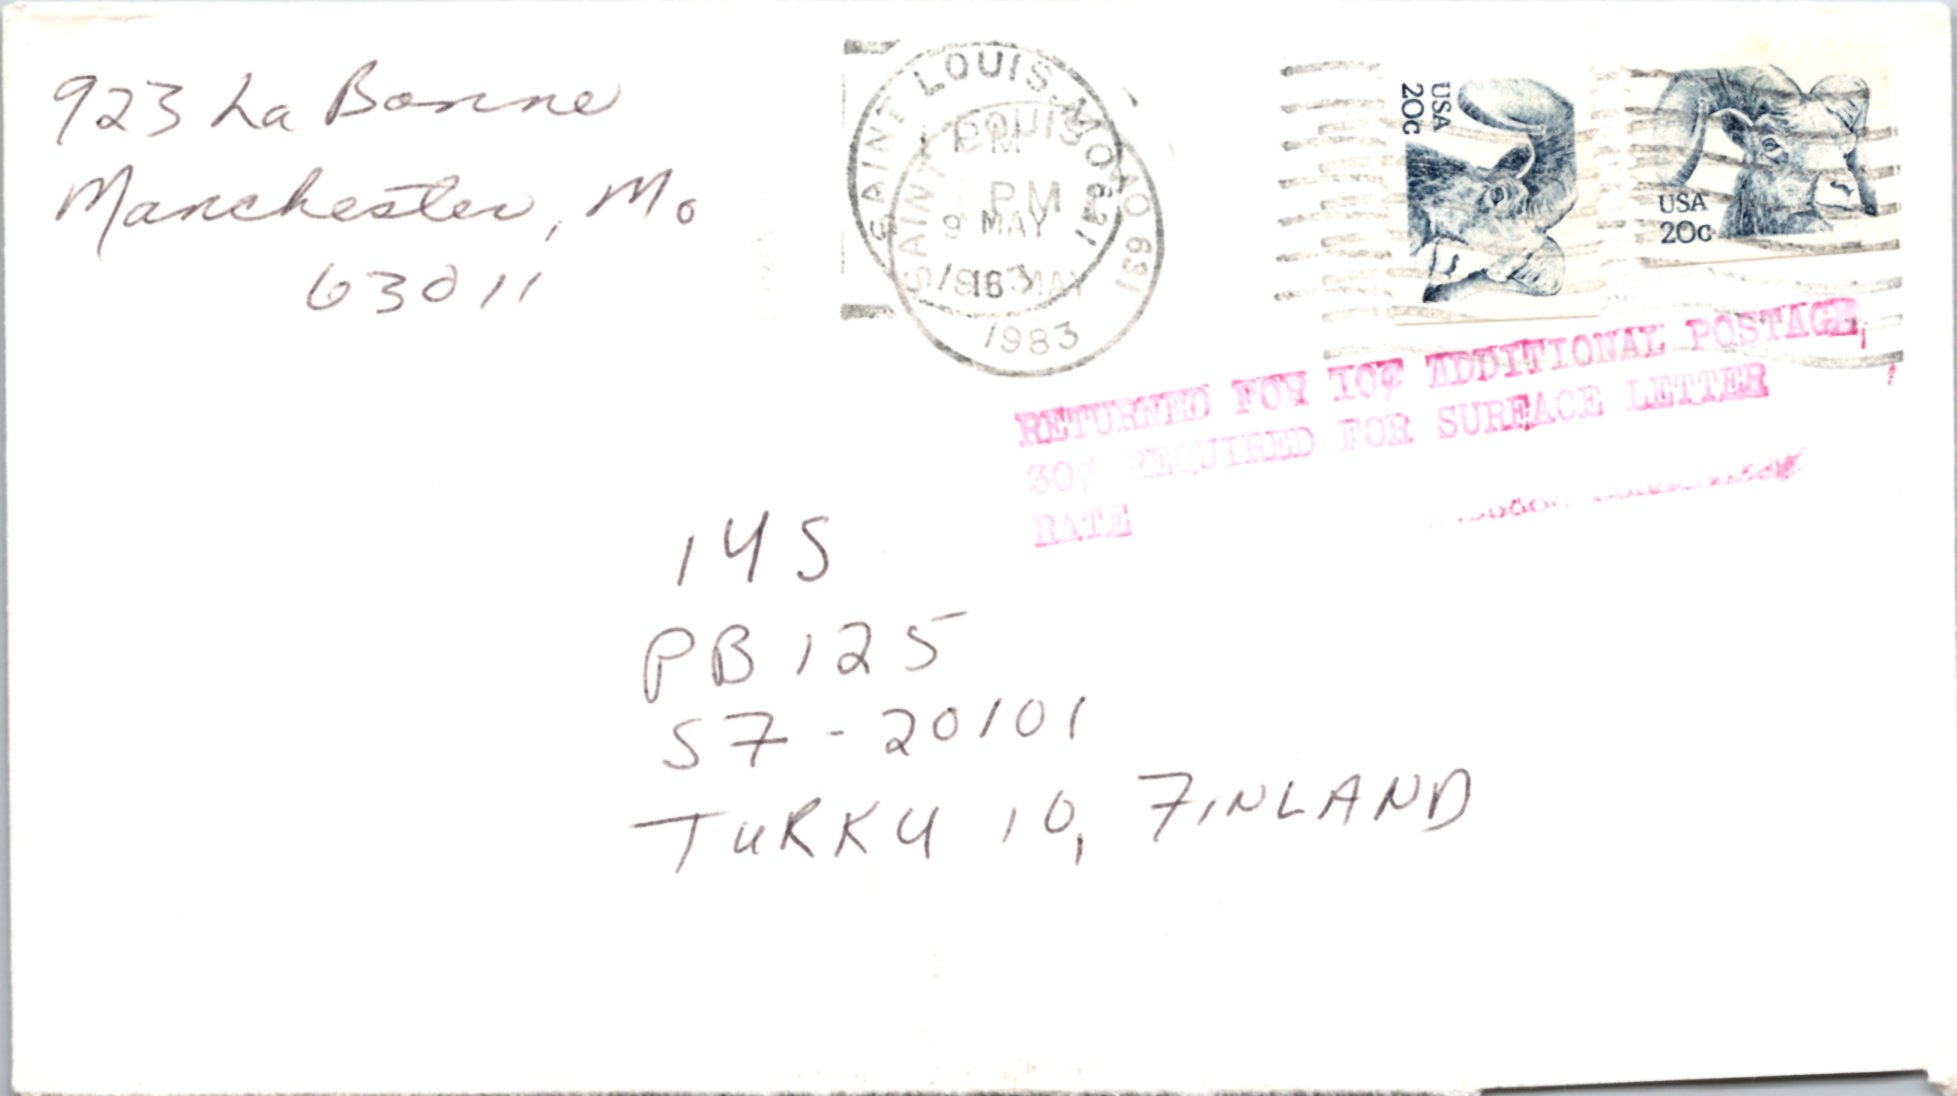 923 La Bonne
Manchester, Mo
63011
SAINT LOUIS, MO 631
PM
9 MAY
1983
SAINT LOUIS MO 631
PM
16 MAY
1983
USA
20c
USA
20c
RETURNED FOR 10¢ ADDITIONAL POSTAGE,
30¢ REQUIRED FOR SURFACE LETTER
RATE
IYS
PB 125
SF-20101
TURKU 10, FINLAND